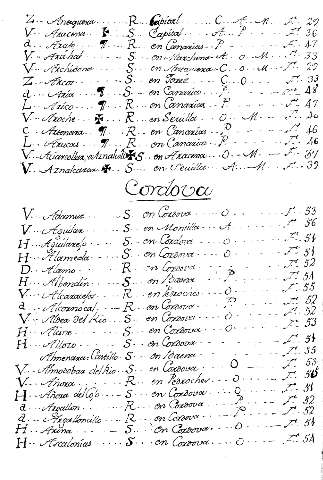 Z Antequera R Capital C A M f.º 29
V Aracena ✠ S Capital A P f.º 36
d Arafo ¶ R en Canarias P f.º 47
V Arahal S en Marchena A O M f.º 33
V Archidona S en Antequera C O M f.º
Z Arcos S en Jerez C O f.º 33
d Aria ¶ S en Canarias P f.º 48
L Arico ¶ R en Canarias P f.º 47
V Aroche ✠ R en Sevilla O M f.º
c Artenara ¶ R en Canarias P f.º 46
L Arucas ¶ R en Canarias P f.º 46
V S en Aracena O M f.º 37
V Aznalcazar ✠ S en Sevilla A M f.º 33
Cordova
V Adamuz S en Cordova O f.º 53
V Aguilar S en Montilla A f.º 56
H Aguilarejo S en Cordova O f.º 51
H Alameda S en Cordova O f.º 51
D Alamo R en Cordova f.º 52
H Albendin S en Baena P f.º
V Alcaracejos R en Pedroches O f.º 55
d Alcornocal R en Cordova P f.º 52
V Albea del Rio S en Cordova O f.º 52
H Alura S en Cordova O f.º 53
H Allozo S en Cordova f.º 51
Almenara: Castillo S en Baena f.º 55
V Almodobar del Rio S en Cordova O f.º 53
V Añora R en Pedroches O f.º 56
H Añora del Cojo S en Cordova O f.º 51
a R en Cordova P f.º 52
a R en Cordova P f.º 52
H S en Cordova O f.º 51
H Arcalonias S en Cordova O f.º 51